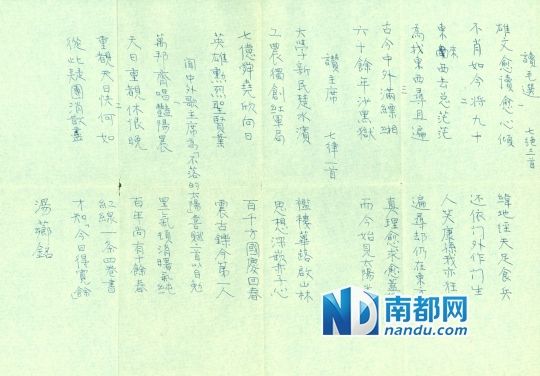 讚毛選 七絕三首
雄文愈讀愈心傾 緯地經天足食兵
不肖如今将九十 还依門外作门生
東西去总茫茫 人笑 我亦狂
為我東西尋且遍 遍尋却仍在東
古今中外滿縹緗 真理愈求愈
六十餘年沙黑獄 而今始見太陽
讚主席 七律一首
大學新民楚水濱 襤褸蓽路啟山林
工農獨創紅軍局 思想深嵌赤子心
七億舜堯欣向日 百千万國慶回春
英雄勲烈聖賢業 震古鑠今第一人
聞中外歌主席為「不落的太陽」喜賦二首以自勉
萬邦齊唱豔陽晨 黑氣頓消曙氣純
天日重覩休恨晚 百年尚有十餘春
重覩天日快何如 紅線一条四卷書
從此疑團消散盡 才知「今日得寬餘」
湯薌銘
ND 南都网
nandu.com